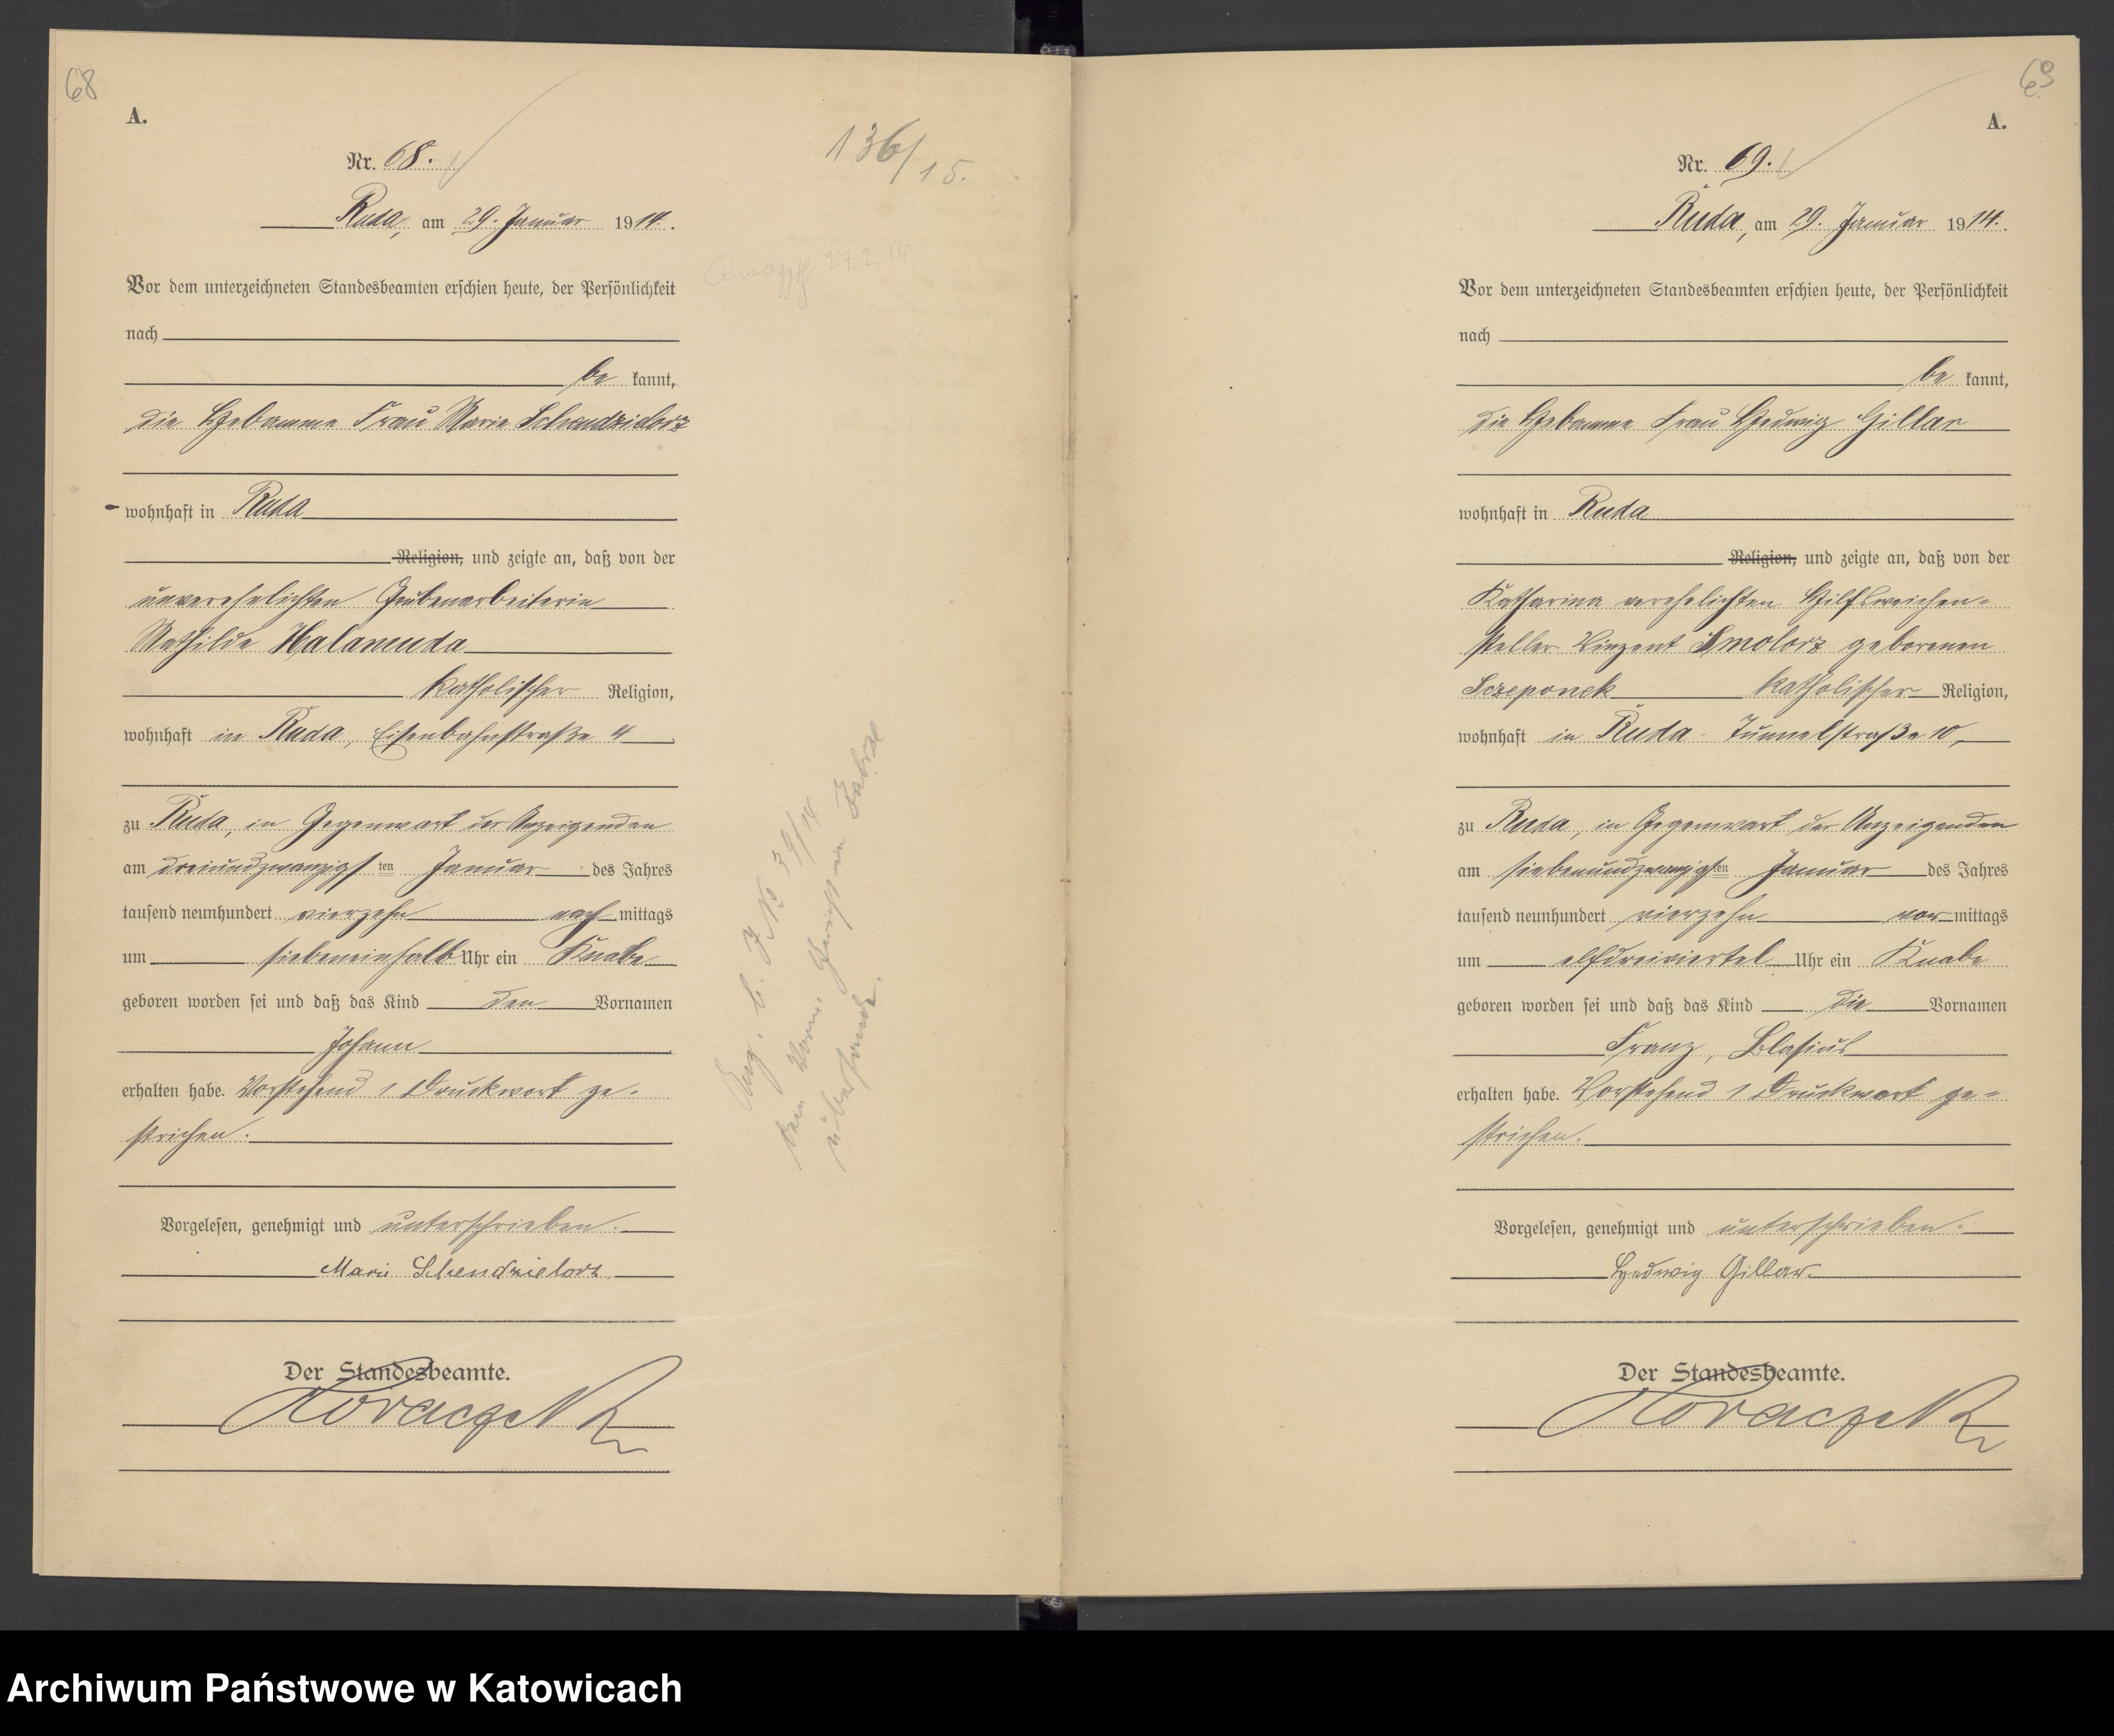 68
A.
Nr. 68.
136/15.
Ruda, am 29. Januar 1914.
27.2.14.
Vor dem unterzeichneten Standesbeamten erschien heute, der Persönlichkeit
nach
be kannt,
die Hebamme Frau Marie Schendzielorz
wohnhaft in Ruda
Religion, und zeigte an, daß von der
unverehelichten Grubenarbeiterin
Mathilde Halamuda
katholischer Religion,
wohnhaft in Ruda, Eisenbahnstraße 4
zu Ruda, in Gegenwart der Anzeigenden
am dreiundzwanzigsten Januar des Jahres
tausend neunhundert vierzehn nach mittags
um siebeneinhalb Uhr ein Knabe
geboren worden sei und daß das Kind den Vornamen
Johann
erhalten habe. Vorstehend 1 Druckwort ge-
strichen.
Vorgelesen, genehmigt und unterschrieben.
Marie Schendzielorz
Der Standesbeamte.
Koraczek
39/14
dem Gericht in Zabrze
übersandt.
69
A.
Nr. 69.
Ruda, am 29. Januar 1914.
Vor dem unterzeichneten Standesbeamten erschien heute, der Persönlichkeit
nach
be kannt,
die Hebamme Frau Hedwig Gillar
wohnhaft in Ruda
Religion, und zeigte an, daß von der
Katharina verehelichten Hilfsweichen-
steller Vinzent Smolorz geborenen
Sczeponek katholischer Religion,
wohnhaft in Ruda - Tunnelstraße 10,
zu Ruda, in Gegenwart der Anzeigenden
am siebenundzwanzigsten Januar des Jahres
tausend neunhundert vierzehn vor mittags
um elfdreiviertel Uhr ein Knabe
geboren worden sei und daß das Kind die Vornamen
Franz, Blasius
erhalten habe. Vorstehend 1 Druckwort ge-
strichen.
Vorgelesen, genehmigt und unterschrieben.
Hedwig Gillar.
Der Standesbeamte.
Koraczek
Archiwum Państwowe w Katowicach